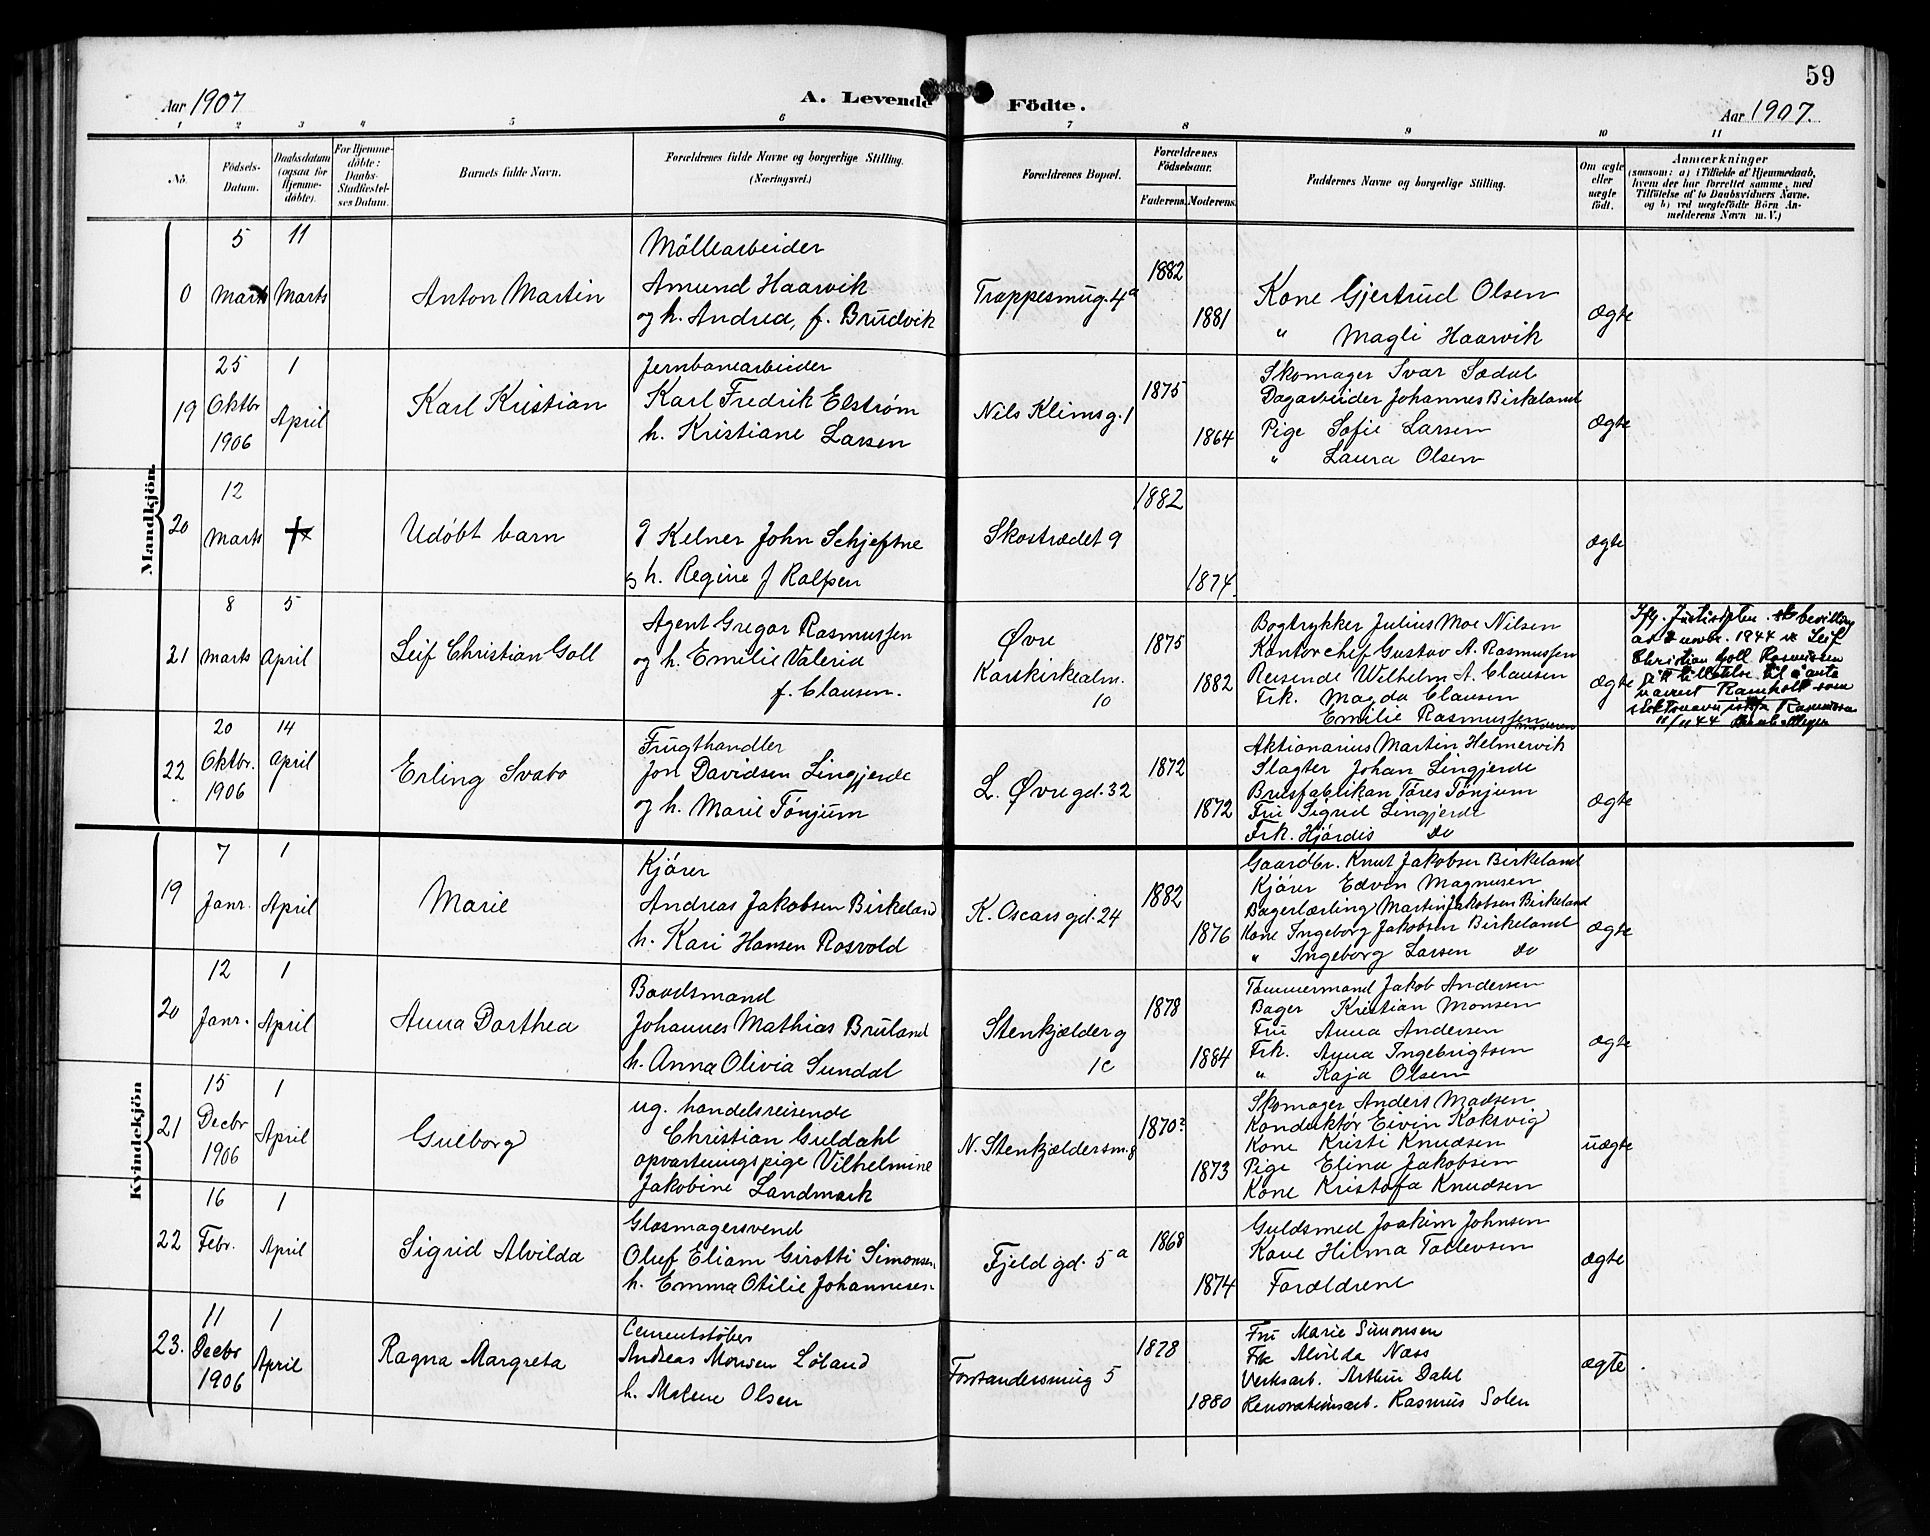 59
Aar 1907
A. Levende Födte.
Aar 1907.
1 2 3 4 5 6 7 8 9 10 11
No.
Födsels-
Datum.
Daabsdatum
(ogsaa for
Hjemme-
døbte).
For Hjemme-
døbte:
Daabs-
Stadfæstel-
ses Datum.
Barnets fulde Navn.
Forældrenes fulde Navne og borgerlige Stilling.
(Næringsvei.)
Forældrenes Bopæl.
Forældrenes
Fødselsaar.
Faderens. Moderens.
Faddernes Navne og borgerlige Stilling.
Om ægte
eller
uægte
født.
Anmærkninger
(saasom: a) i Tilfælde af Hjemmedaab,
hvem der har forrettet samme, med
Tilføielse af to Daabsvidners Navne.
og b) ved uægtefødte Børn An-
melderens Navn m. V.)
Mandkjön.
0
5
Marts
11
Marts
Anton Martin
Möllearbeider
Amund Haarvik
og h. Andrea, f. Brudvik
Trappesmug. 4a
1882
1881
Kone Gjertrud Olsen
" Magli Haarvik
ægte
19
25
Oktbr
1906
1
April
Karl Kristian
Jernbanearbeider
Karl Fredrik Elstrøm
h. Kristiane Larsen
Nils Klimsg. 1
1875
1864
Skomager Ivar Sædal
Dagarbeider Johannes Birkeland
Pige Sofie Larsen
" Laura Olsen
ægte
20
12
Marts
Udöbt barn
Kelner John Schjeftne
h. Regine f Ralfsen
Skostrædet 9
1882
1874.
ægte
21
8
Marts
5
April
Leif Christian Goll
Agent Gregor Rasmussen
og h. Emilie Valeria
f. Clausen.
Øvre
Korskirkealm.
10
1875
1882
Bogtrykker Julius Moe Nilsen
Kontorchef Gustav A. Rasmussen
Reisende Wilhelm A. Clausen
Frk. Magda Clausen
Emilie Rasmussen
ægte
Ifg. Justisdptn. bevilling
av 2 novbr. 1944 Leif
Christian Goll Rasmussen
tillatelse til å anta
navnet Ramholt som
slektsnavn istf. Rasmussen
11/11 44
22
20
Oktbr.
1906
14
April
Erling Svabo
Frugthandler
Jon Davidsen Lingjerde
og h. Marie Tönjum
L. Øvregd. 32
1872
1872
Aktionarius Martin Helmervik
Slagter Johan Lingjerde
Brusfabrikan Tøres Tönjum
Fru Sigrid Lingjerde
Frk. Hjördis Do
ægte
Kvindekjön
19
7
Janr.
1
April
Marie
Kjörer
Andreas Jakobsen Birkeland
h. Kari Hansen Rosvold
K. Oscars gd. 24
1882
1876
Gaardbr. Knut Jakobsen Birkeland
Kjörer Edvin Magnusen
Bagerlærling Martin Jakobsen Birkeland
Kone Ingeborg Jakobsen Birkeland
" Ingeborg Larsen Do
ægte
20
12
Janr.
1
April
Anna Dorthea
Baadsmand
Johannes Mathias Bruland
h. Anna Olivia Sundal
Stenkjælderg
1c
1878
1884
Tömmermand Jakob Andersen
Bager Kristian Monsen
Fru Anna Andersen
Frk. Anna Ingebrigtsen
" Kaja Olsen
ægte
21
15
Decbr
1906
1
April
Guleborg
ug. handelsreisende
Christian Guldahl
opvartningspige Vilhelmine
Jakobine Landmark
N. Stenkjældersm. 8
1870?
1873
Skomager Anders Madsen
Konduktør Eivin Koksvig
Kone Kristi Knudsen
Pige Elina Jakobsen
Kone Kristofa Knudsen
uægte
22
16
Febr.
1
April
Sigrid Alvilda
Glasmagersvend
Oluf Eliam Girotti Simonsen
h. Emma Otilie Johannesen
Fjeld gd. 5 a
1868
1874
Guldsmed Joakim Johnsen
Kone Hilma Tollevsen
Forældrene
ægte
23.
11
Decbr
1906
1
April
Ragna Margreta
Cementstøber
Andreas Monsen Løland
h. Malene Olsen
Forstandersmug 5
1878
1880
Fru Marie Simonsen
Frk Alvilda Næss
Verksarb. Arthur Dahl
Renovationsarb. Rasmus Solen
ægte